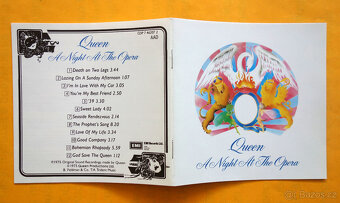 CDP 7 46207 2
AAD
Queen
A Night At The Opera
1 Death on Two Legs 3.44
2 Lazing On A Sunday Afternoon 1.07
3 I'm In Love With My Car 3.05
4 You're My Best Friend 2.50
5 '39 3.30
6 Sweet Lady 4.02
7 Seaside Rendezvous 2.14
8 The Prophet's Song 8.20
9 Love Of My Life 3.34
10 Good Company 3.17
11 Bohemian Rhapsody 5.59
12 God Save The Queen 1.12
EMI
EMI Records Ltd.
Queen
A Night At The Opera